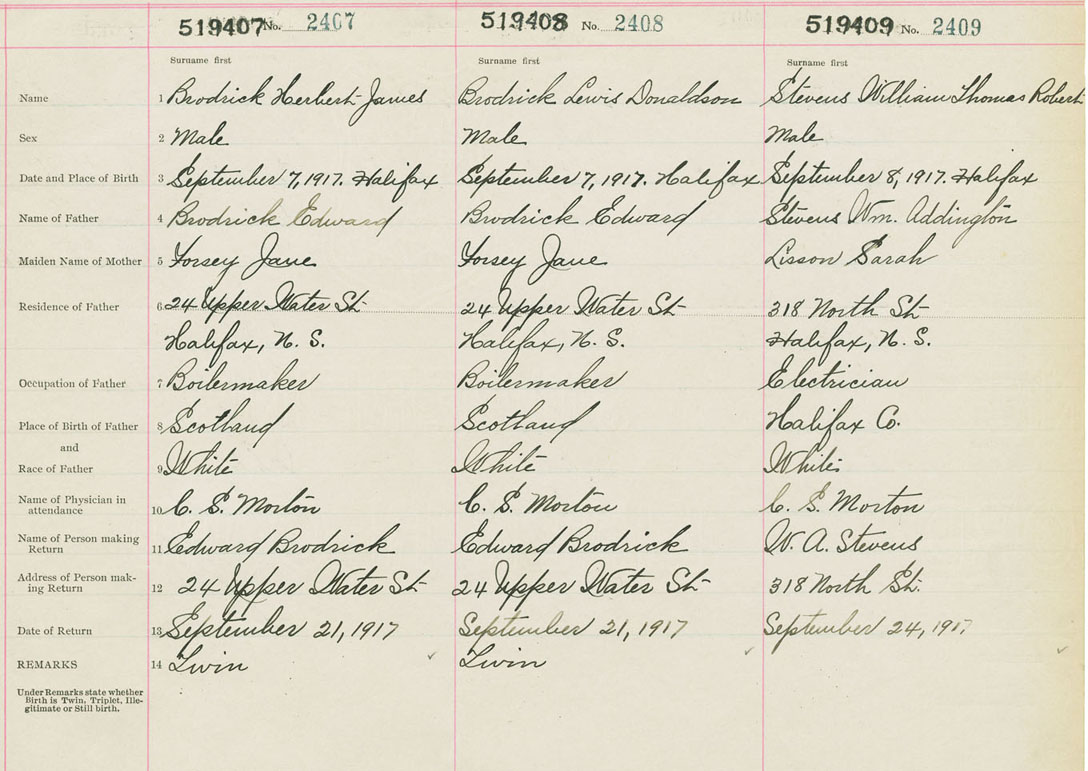 519407 No. 2407 519408 No. 2408 519409 No. 2409
Surname first Surname first Surname first
Name 1 Brodrick Herbert James Brodrick Lewis Donaldson Stevens William Thomas Robert
Sex 2 Male Male Male
Date and Place of Birth 3 September 7, 1917. Halifax September 7, 1917. Halifax September 8, 1917. Halifax
Name of Father 4 Brodrick Edward Brodrick Edward Stevens Wm. Addington
Maiden Name of Mother 5 Forsey Jane Forsey Jane Lisson Sarah
Residence of Father 6 24 Upper Water St 24 Upper Water St 318 North St
Halifax, N. S. Halifax, N. S. Halifax, N. S.
Occupation of Father 7 Boilermaker Boilermaker Electrician
Place of Birth of Father 8 Scotland Scotland Halifax Co.
and
Race of Father 9 White White White
Name of Physician in
attendance 10 C. S. Morton C. S. Morton C. S. Morton
Name of Person making
Return 11 Edward Brodrick Edward Brodrick W. A. Stevens
Address of Person mak-
ing Return 12 24 Upper Water St 24 Upper Water St 318 North St.
Date of Return 13 September 21, 1917 September 21, 1917 September 24, 1917
REMARKS 14 Twin Twin
Under Remarks state whether
Birth is Twin, Triplet, Ille-
gitimate or Still birth.